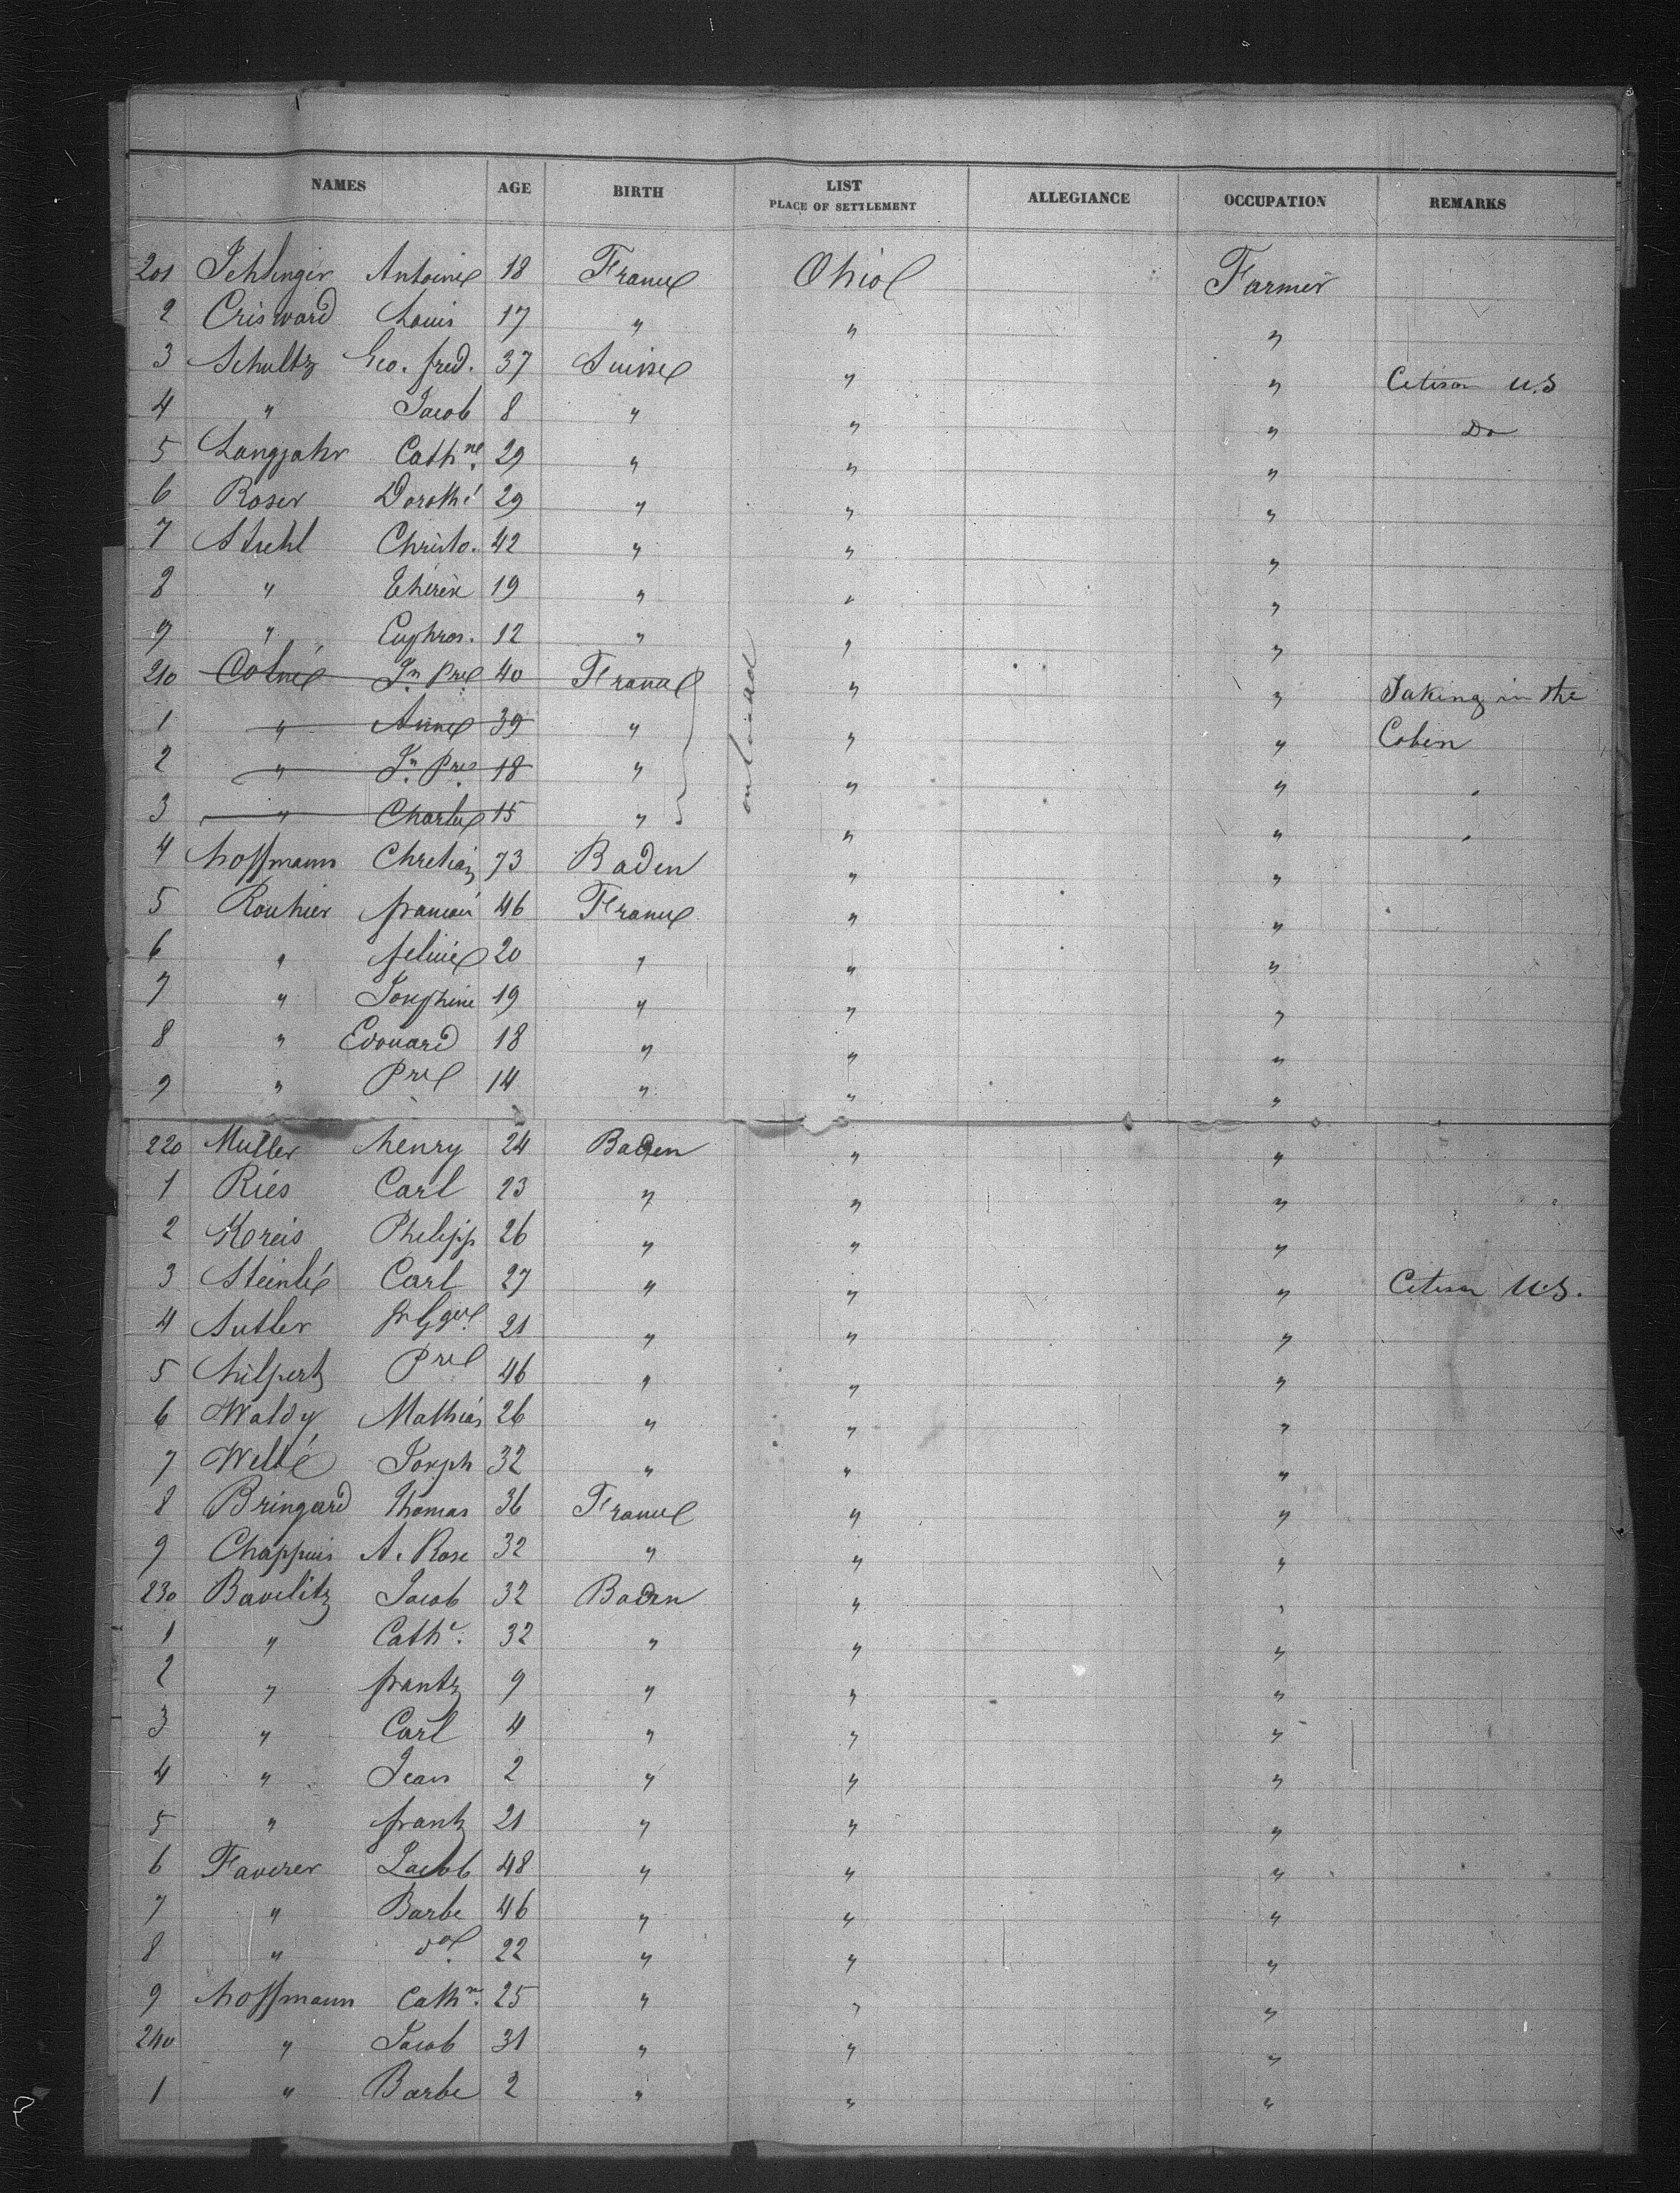 NAMES AGE BIRTH LIST PLACE OF SETTLEMENT ALLEGIANCE OCCUPATION REMARKS
201 Jehlinger Antoine 18 France Ohio Farmer
2 Crisward Louis 17 " " "
3 Schultz Geo. fred. 37 Suisse " " Citison U.S
4 " Jacob 8 " " " Do
5 Langjahr Cathne. 29 " " "
6 Roser Dorothé 29 " " "
7 Stuhl Christo. 42 " " "
8 " Thérèse 19 " " "
9 " Euphros. 12 " " "
210 Colné Jn Pre 40 France " " Taking in the
1 " Anne 39 " " " Cobin
2 " Jn Pre 18 " " " "
3 " Charles 15 " " " "
4 hoffmann Chretian 73 Baden " "
5 Rouhier francois 46 France " "
6 " felicie 20 " " "
7 " Josephine 19 " " "
8 " Edouard 18 " " "
9 " Pre 14 " " "
220 Muller henry 24 Baden " "
1 Ries Carl 23 " " "
2 Kreis Philipp 26 " " "
3 Steinlé Carl 27 " " " Citison U.S.
4 Sutter 21 " " "
5 hilpert Pre 46 " " "
6 Waldy Mathias 26 " " "
7 Wellé Joseph 32 " " "
8 Bringard Thomas 36 France " "
9 Chappuis A. Rose 32 " " "
230 Bavelitz Jacob 32 Baden " "
1 " Cathe. 32 " " "
2 " frantz 9 " " "
3 " Carl 4 " " "
4 " Jean 2 " " "
5 " frantz 21 " " "
6 Faverer Jacob 48 " " "
7 " Barbe 46 " " "
8 " do. 22 " " "
9 hoffmann Cathne. 25 " " "
240 " Jacob 31 " " "
1 " Barbe 2 " " "